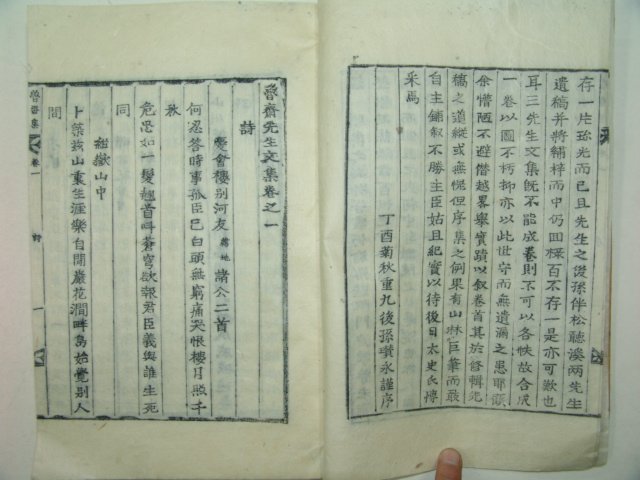 存一片珎光而已且先生之後孫伴松聽溪兩先生
遺稿并將繡梓而中仍回祿百不存一是亦可歎也
耳三先生文集旣不能成卷則不可以各帙故合成
一卷以圖不朽抑亦以此世守而無遺漏之思耶顧
余懵陋不避僭越畧擧實蹟以叙卷首其於脩輯先
稿之道縱或無愧但序集之例果有山林巨筆而敢
自主鋪叙不勝主臣姑且紀實以待後日太史氏博
采焉
丁酉菊秋重九後孫瓚永謹序
魯齋先生文集卷之一
詩
慶會樓別河友 諸公二首
何忍答時事孤臣已白頭無窮痛哭恨樓月照千
秋
危忠如一髮翹首叫蒼穹欲報君臣義與誰生死
同
紺嶽山中
卜築玆山裏生涯樂自閒巖花澗畔鳥始覺別人
間
魯齋集 卷一 詩